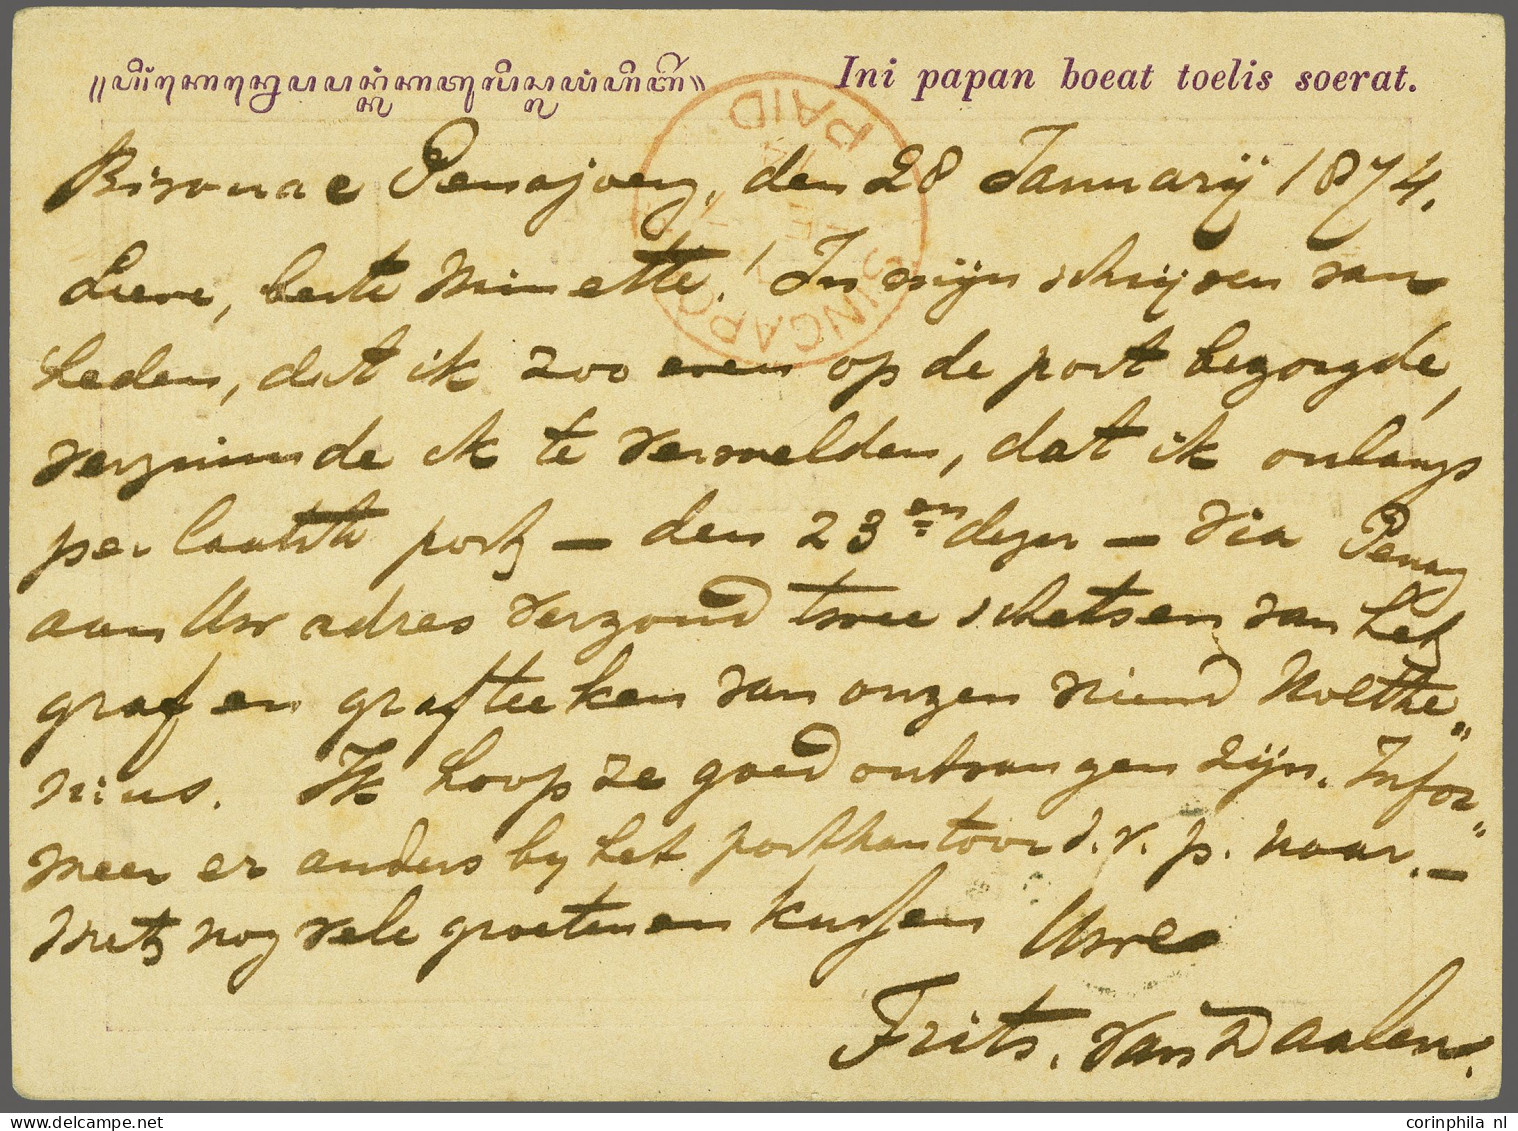 Ini papan boeat toelis soerat.
PAID
SINGAPO
Bivouac Penajoeng, den 28 Januarij 1874.
Lieve, beste Minette! In mijn schrijven van
heden, dat ik zoo even op de post bezorgde,
verzuimde ik te vermelden, dat ik onlangs
per laatste post – den 23en dezer – via Penang
aan Uw adres verzond twee schetsen van het
graf en grafteeken van onzen vriend Nolthe„
nius. Ik hoop ze goed ontvangen zijn. Infor„
meer er anders bij het postkantoor s.v.p. naar. –
Met nog vele groeten en kussen Uwe
Frits. van Daalen.
corinphila nl